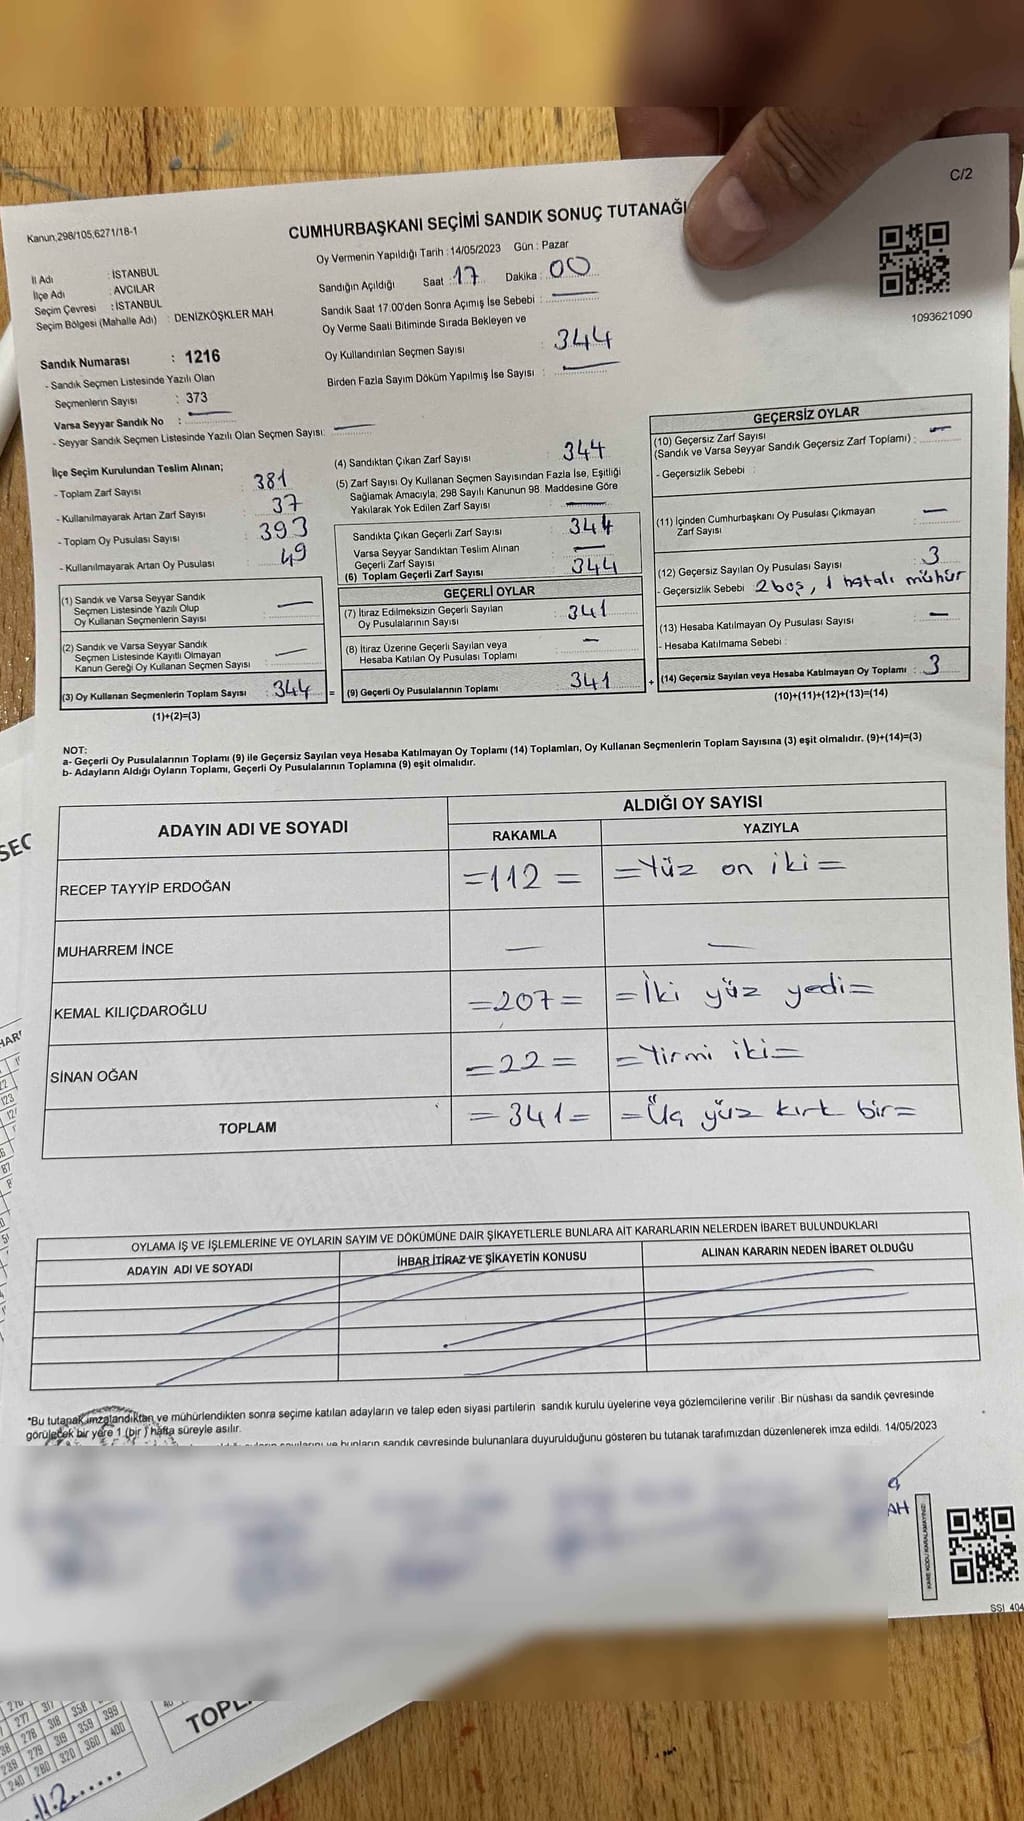 C/2
Kanun,298/105,6271/18-1
CUMHURBAŞKANI SEÇİMİ SANDIK SONUÇ TUTANAĞI
1093621090
İl Adı : İSTANBUL
İlçe Adı : AVCILAR
Seçim Çevresi : İSTANBUL
Seçim Bölgesi (Mahalle Adı) : DENİZKÖŞKLER MAH
Sandık Numarası : 1216
- Sandık Seçmen Listesinde Yazılı Olan
Seçmenlerin Sayısı : 373
Varsa Seyyar Sandık No : —
- Seyyar Sandık Seçmen Listesinde Yazılı Olan Seçmen Sayısı: —
Oy Vermenin Yapıldığı Tarih : 14/05/2023 Gün : Pazar
Sandığın Açıldığı Saat : 17 Dakika : 00
Sandık Saat 17:00'den Sonra Açımış İse Sebebi : —
Oy Verme Saati Bitiminde Sırada Bekleyen ve
Oy Kullandırılan Seçmen Sayısı : 344
Birden Fazla Sayım Döküm Yapılmış İse Sayısı : —
İlçe Seçim Kurulundan Teslim Alınan;
- Toplam Zarf Sayısı : 381
- Kullanılmayarak Artan Zarf Sayısı : 37
- Toplam Oy Pusulası Sayısı : 393
- Kullanılmayarak Artan Oy Pusulası : 49
(1) Sandık ve Varsa Seyyar Sandık
Seçmen Listesinde Yazılı Olup
Oy Kullanan Seçmenlerin Sayısı : —
(2) Sandık ve Varsa Seyyar Sandık
Seçmen Listesinde Kayıtlı Olmayan
Kanun Gereği Oy Kullanan Seçmen Sayısı : —
(3) Oy Kullanan Seçmenlerin Toplam Sayısı : 344
(1)+(2)=(3)
(4) Sandıktan Çıkan Zarf Sayısı : 344
(5) Zarf Sayısı Oy Kullanan Seçmen Sayısından Fazla İse, Eşitliği
Sağlamak Amacıyla; 298 Sayılı Kanunun 98. Maddesine Göre
Yakılarak Yok Edilen Zarf Sayısı : —
Sandıkta Çıkan Geçerli Zarf Sayısı : 344
Varsa Seyyar Sandıktan Teslim Alınan
Geçerli Zarf Sayısı : —
(6) Toplam Geçerli Zarf Sayısı : 344
GEÇERLİ OYLAR
(7) İtiraz Edilmeksizin Geçerli Sayılan
Oy Pusulalarının Sayısı : 341
(8) İtiraz Üzerine Geçerli Sayılan veya
Hesaba Katılan Oy Pusulası Toplamı : —
= (9) Geçerli Oy Pusulalarının Toplamı : 341
GEÇERSİZ OYLAR
(10) Geçersiz Zarf Sayısı
(Sandık ve Varsa Seyyar Sandık Geçersiz Zarf Toplamı) : —
- Geçersizlik Sebebi :
(11) İçinden Cumhurbaşkanı Oy Pusulası Çıkmayan
Zarf Sayısı : —
(12) Geçersiz Sayılan Oy Pusulası Sayısı : 3
- Geçersizlik Sebebi 2 boş, 1 hatalı mühür
(13) Hesaba Katılmayan Oy Pusulası Sayısı : —
- Hesaba Katılmama Sebebi :
+ (14) Geçersiz Sayılan veya Hesaba Katılmayan Oy Toplamı : 3
(10)+(11)+(12)+(13)=(14)
NOT:
a- Geçerli Oy Pusulalarının Toplamı (9) ile Geçersiz Sayılan veya Hesaba Katılmayan Oy Toplamı (14) Toplamları, Oy Kullanan Seçmenlerin Toplam Sayısına (3) eşit olmalıdır. (9)+(14)=(3)
b- Adayların Aldığı Oyların Toplamı, Geçerli Oy Pusulalarının Toplamına (9) eşit olmalıdır.
ADAYIN ADI VE SOYADI ALDIĞI OY SAYISI
RAKAMLA YAZIYLA
RECEP TAYYİP ERDOĞAN =112= =Yüz on iki=
MUHARREM İNCE — —
KEMAL KILIÇDAROĞLU =207= =İki yüz yedi=
SİNAN OĞAN =22= =Yirmi iki=
TOPLAM =341= =Üç yüz kırk bir=
OYLAMA İŞ VE İŞLEMLERİNE VE OYLARIN SAYIM VE DÖKÜMÜNE DAİR ŞİKAYETLERLE BUNLARA AİT KARARLARIN NELERDEN İBARET BULUNDUKLARI
ADAYIN ADI VE SOYADI İHBAR İTİRAZ VE ŞİKAYETİN KONUSU ALINAN KARARIN NEDEN İBARET OLDUĞU
*Bu tutanak imzalandıktan ve mühürlendikten sonra seçime katılan adayların ve talep eden siyasi partilerin sandık kurulu üyelerine veya gözlemcilerine verilir. Bir nüshası da sandık çevresinde
görülecek bir yere 1 (bir) hafta süreyle asılır.
ve bunların sandık çevresinde bulunanlara duyurulduğunu gösteren bu tutanak tarafımızdan düzenlenerek imza edildi. 14/05/2023
AH
KARE KODU KARALAMAYINIZ!
SSI 404
TOPL
277 317 358 399
238 278 318 359 399
239 279 319 360 400
240 280 320 360 400